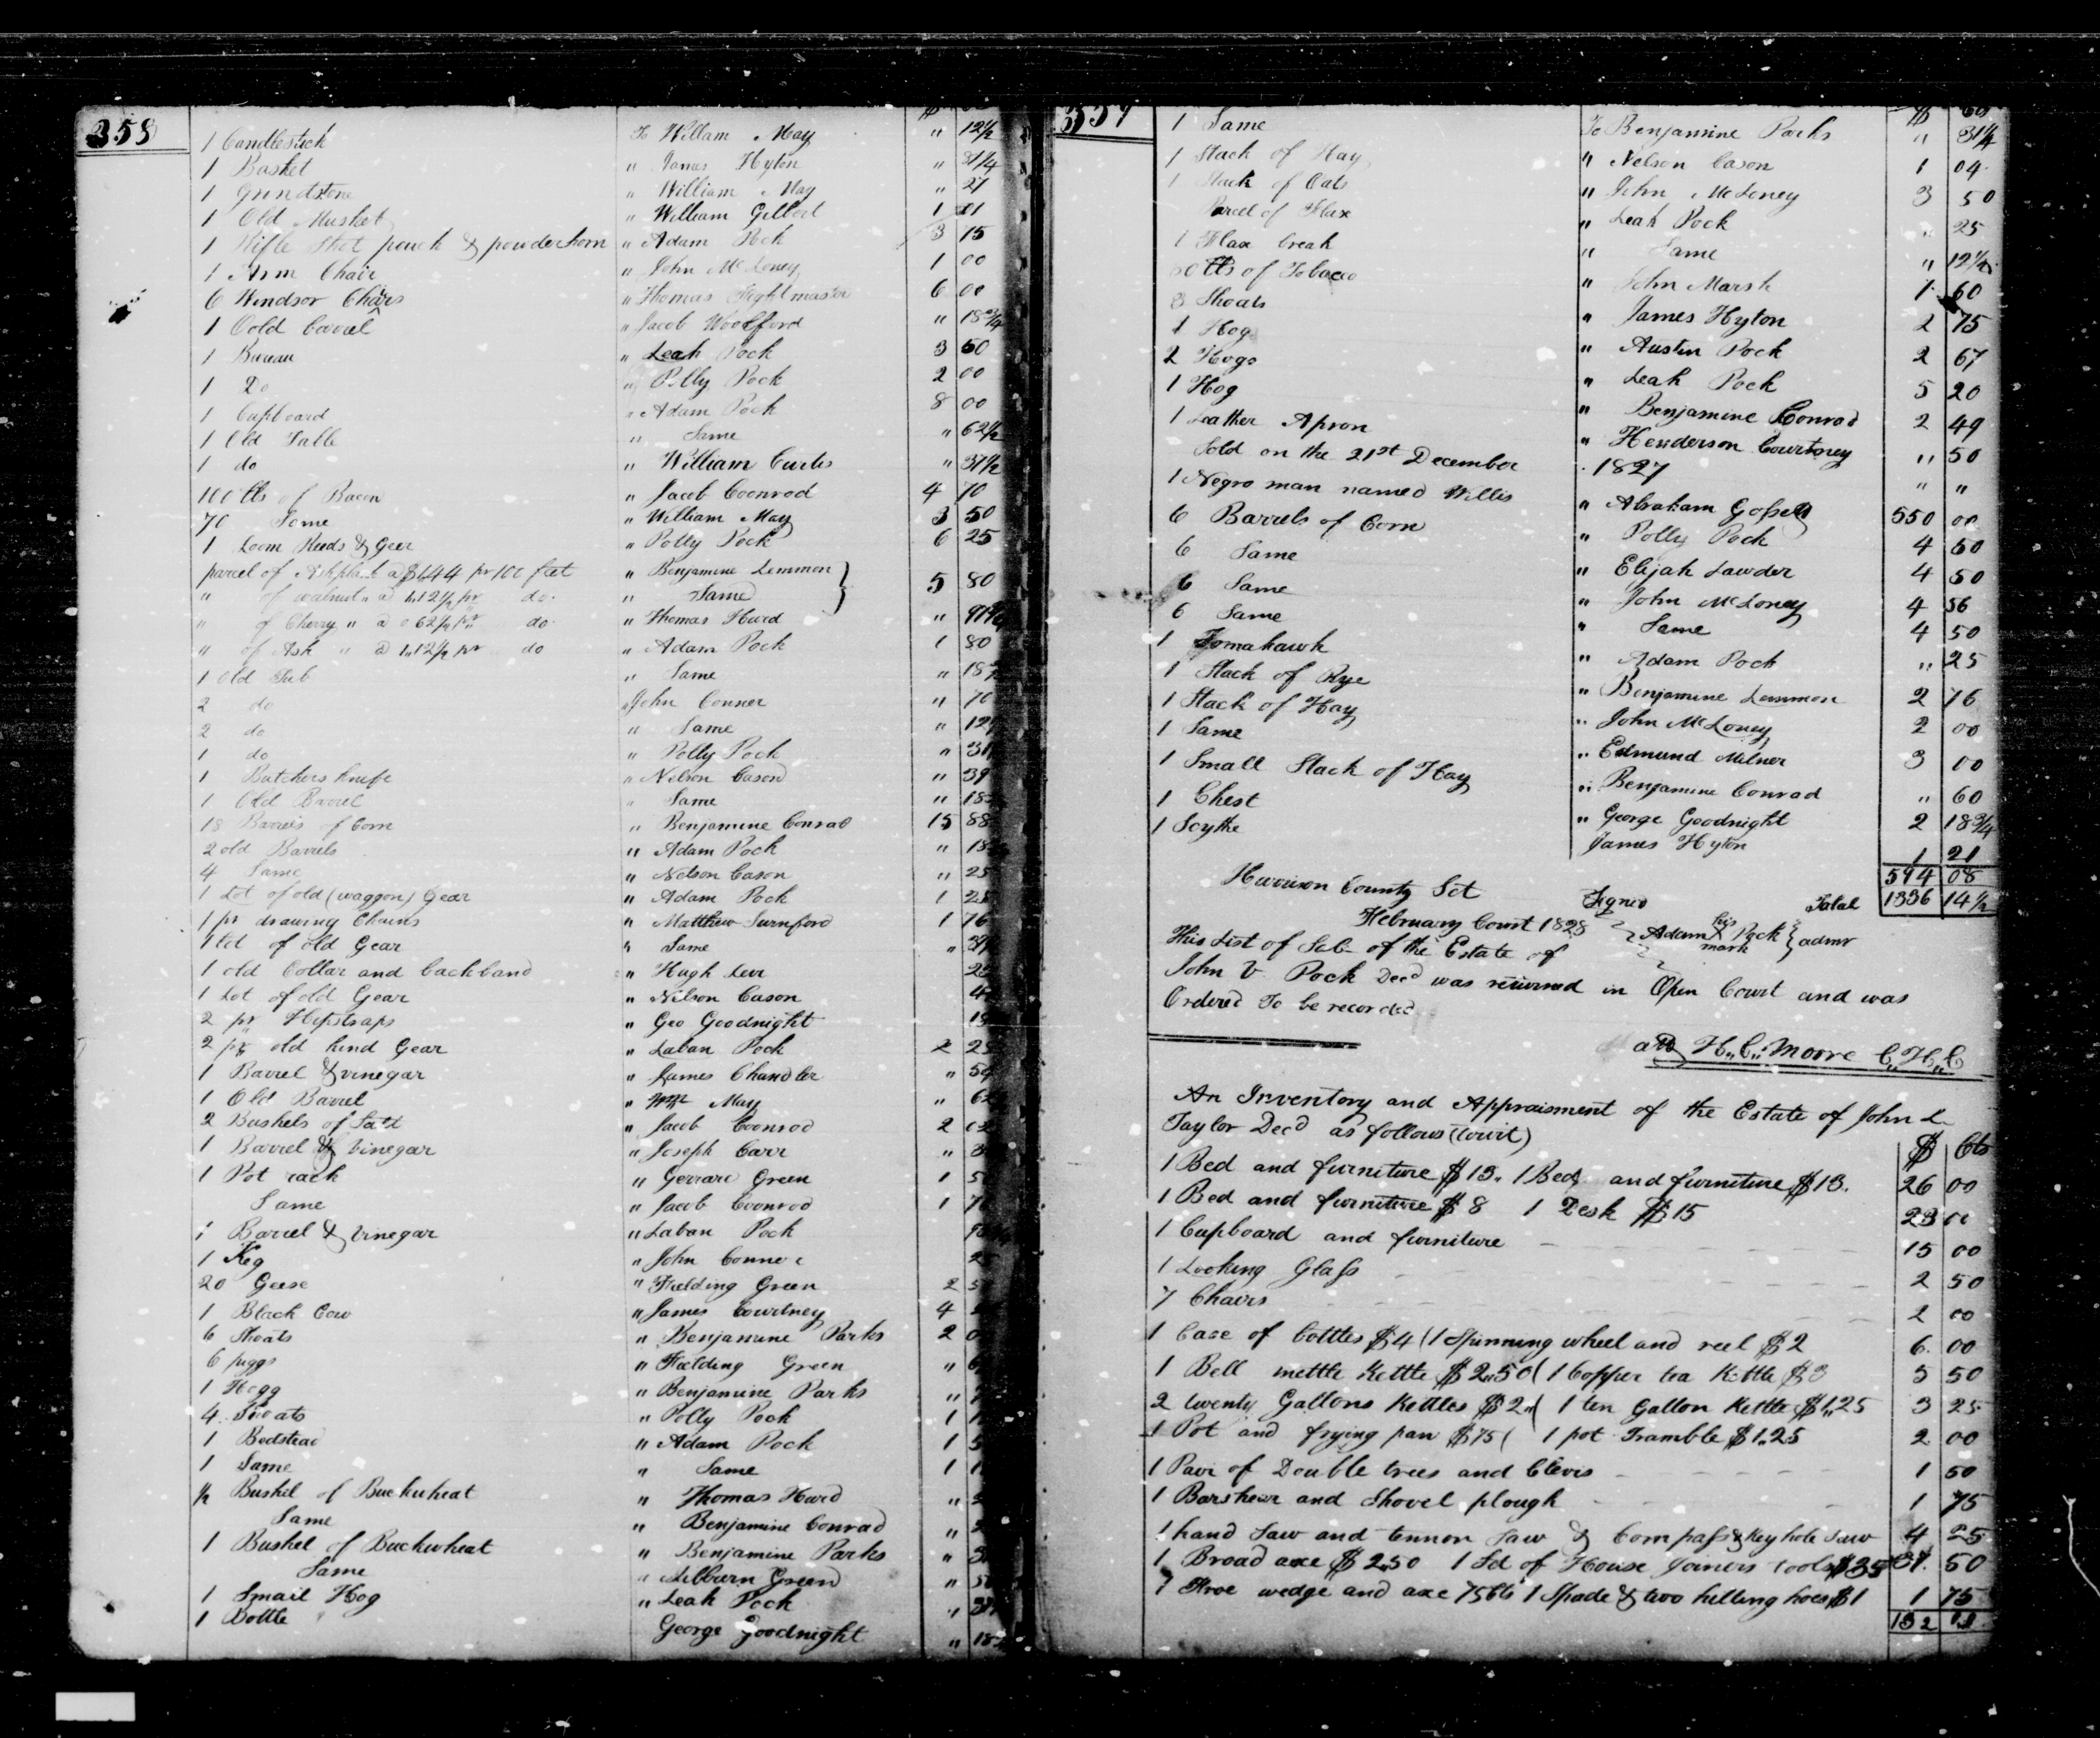 358
1 Candlestick To Willam May " 12 1/2
1 Basket " James Hyton " 31 1/4
1 Grindstone " William May " 27
1 Old Musket " William Gilbert 1
1 Rifle Shot pouch & powder horn " Adam Pock 3 15
1 Arm Chair " John McLoney 1 00
6 Windsor Chairs " Thomas 6 00
1 Barrel " Jacob Woolford " 18 3/4
1 Bureau " Leah Pock 3 50
1 Do " Polly Pock 2 00
1 Cupboard " Adam Pock 8 00
1 Old Table " Same " 62 1/2
1 do " William Curtis " 37 1/2
100 lbs of Bacon " Jacob Coonrod 4 70
70 Same " William May 3 50
1 Loom Reeds & Geer " Polly Pock 6 25
parcel of pr 100 feet " Benjamine Lemmon } 5 80
" of walnut " a 1,,12 1/2 pr do. " Same
" of Cherry " a 62 1/2 pr do. " Thomas Hurd "
" of Ash " a 1,,12 1/2 pr do " Adam Pock 1 80
1 Old Tub " Same "
2 do " John Conner " 70
2 do " Same "
1 do " Polly Pock "
1 Butchers knife " Nelson Cason " 39
1 Old Barrel " Same "
18 Barrels of Corn " Benjamine Conrad 15 88
2 old Barrels " Adam Pock "
4 Same " Nelson Cason " 25
1 Lot of old (waggon) Gear " Adam Pock 1
1 pr drawing Chains " Matthew 1 76
1 lot of old Gear " Same "
1 old Collar and backband " Hugh
1 Lot of old Gear " Nelson Cason
2 pr Hipstraps " Geo Goodnight
2 pr old hind Gear " Laban Pock 2
1 Barrel & vinegar " James Chandler "
1 Old Barrel " Wm May "
2 Bushels of Salt " Jacob Coonrod 2
1 Barrel & Vinegar " Joseph Carr "
1 Pot rack " Gerrard Green 1
Same " Jacob Coonrod 1
1 Barrel & Vinegar " Laban Pock
1 Keg " John Conner
20 Geese " Fielding Green 2
1 Black Cow " James Courtney 4
6 Shoats " Benjamine Parks 2
6 piggs " Fielding Green "
1 Hogg " Benjamine Parks "
4 Shoats " Polly Pock 1
1 Bedstead " Adam Pock 1
1 Same " Same 1
1/2 Bushel of Buckwheat " Thomas Hurd "
Same " Benjamine Conrad "
1 Bushel of Buckwheat " Benjamine Parks "
Same " Green "
1 Small Hog " Leah Pock "
1 Bottle George Goodnight "
1 Same To Benjamine Parks " 31 1/4
1 Stack of Hay " Nelson Cason 1 04
1 Stack of Oats " John McLoney 3 50
Parcel of Flax " Leah Pock " 25
1 Flax break " Same " 12 1/2
lbs of Tobacco " John Marsh 1 60
8 Shoats " James Hyton 2 75
1 Hog " Austin Pock 2 67
2 Hogs " Leah Pock 5 20
1 Hog " Benjamine Conrad 2 49
1 Leather Apron " Henderson Courtney " 50
Sold on the 21st December 1827 " "
1 Negro man named Willis " Abraham 550 00
6 Barrels of Corn " Polly Pock 4 50
6 Same " Elijah Lawder 4 50
6 Same " John McLoney 4 56
6 Same " Same 4 50
1 Tomahawk " Adam Pock " 25
1 Stack of Rye " Benjamine Lemmon 2 76
1 Stack of Hay " John McLoney 2 00
1 Same " Edmund Milner 3 00
1 Small Stack of Hay " Benjamine Conrad " 60
1 Chest " George Goodnight 2 18 3/4
1 Scythe James Hyton 1 21
594 08
Harrison County Sct Signed Total 1336 14 1/2
February Court 1828 Adam his X mark Pock } admr
This List of Sale of the Estate of
John V Pock Decd was returned in Open Court and was
Ordered To be recorded
att H,,C,, Moore C,,H,,C
An Inventory and Appraisment of the Estate of John L
Taylor Decd as follows (towit) $ Cts
1 Bed and furniture $13,, 1 Bed and furniture $13. 26 00
1 Bed and furniture $8 1 Desk $15 23 00
1 Cupboard and furniture 15 00
1 Looking Glass 2 50
7 Chairs 2 00
1 Case of bottles $4 (1 Spinning wheel and reel $2 6 00
1 Bell mettle Kettle $2,,50 (1 Copper tea Kettle $3 5 50
2 twenty Gallons Kettles $2,, (1 ten Gallon Kettle $1,,25 3 25
1 Pot and frying pan $75 ( 1 pot Tramble $1,,25 2 00
1 Pair of Double trees and Clevis 1 50
1 Barshear and Shovel plough 1 75
1 hand Saw and tennon Saw & Compass & Key hole Saw 4 25
1 Broad axe $2,,50 1 Sd of House Joiners tools $35 37. 50
1 Froe wedge and axe 75cts 1 Spade & two hilling hoes $1 1 75
132